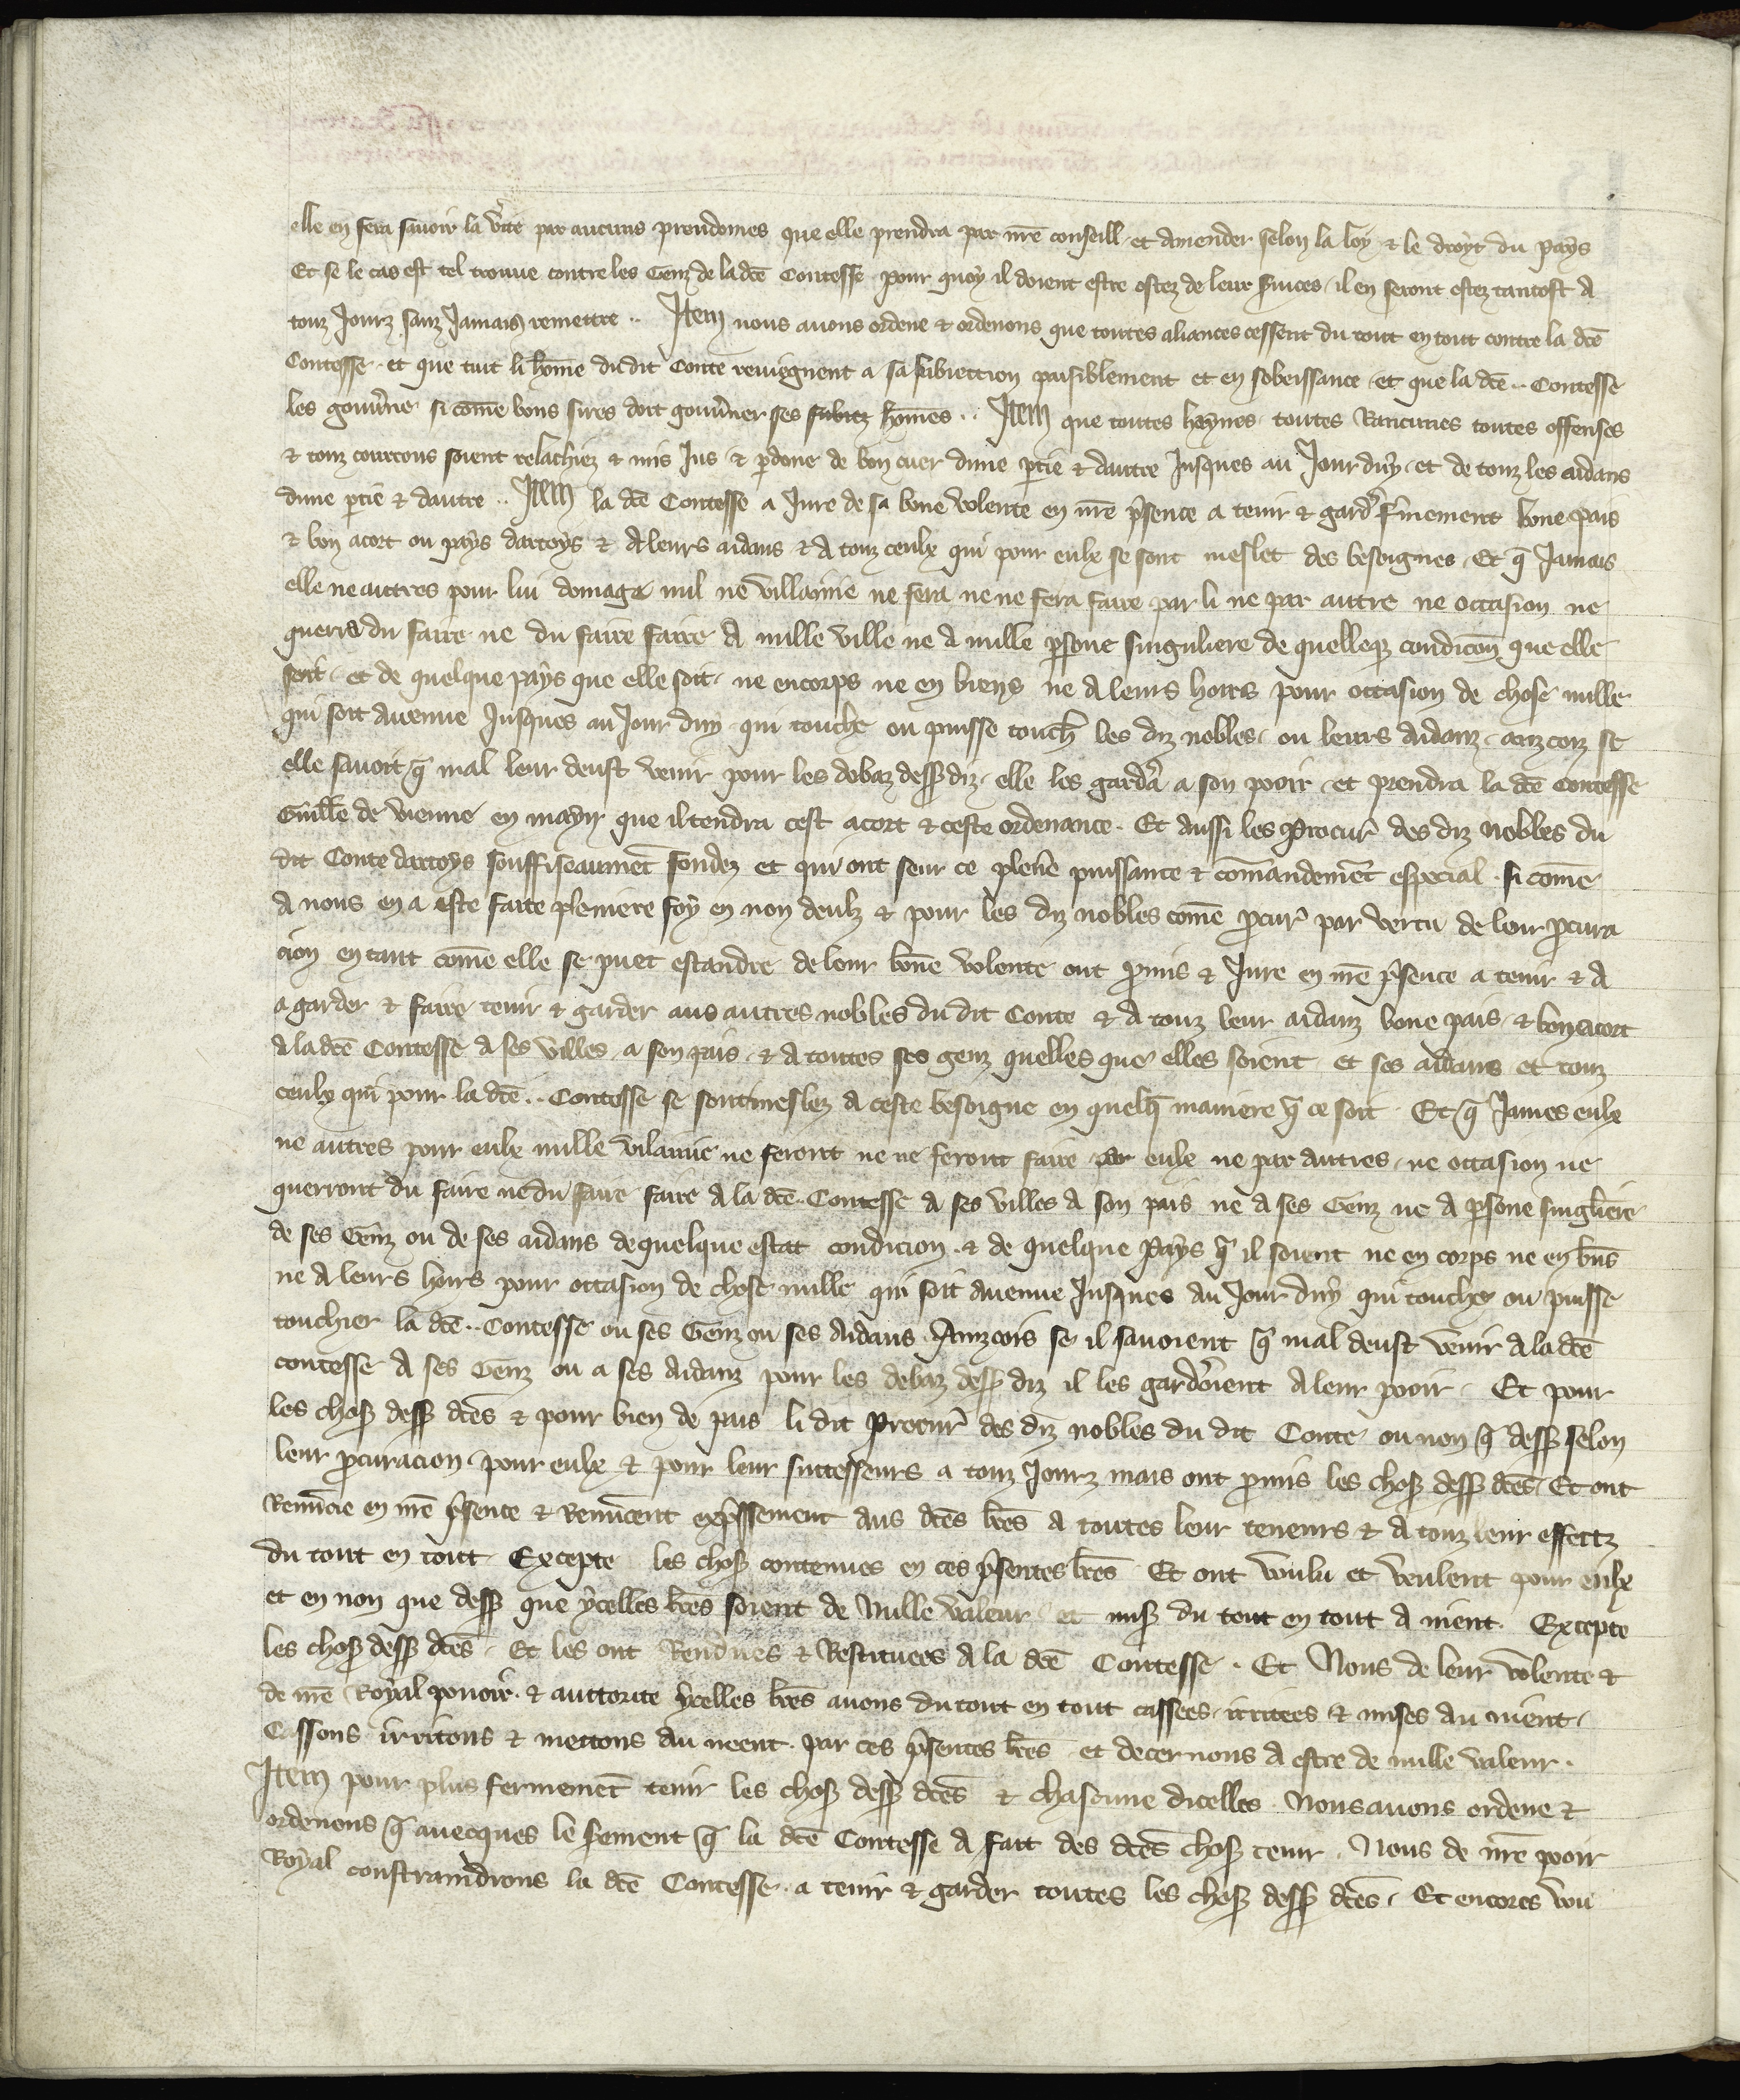 elle en fera sauoir la v̾ite par aucuns preudomes que elle prendra par nr̄e conseill et amender selon la loy & le droyt du pays
Et se le cas est tel trouue contre les Genz de la dc̄e Contesse pour quoy il doient estre ostez de leur s̾uices, il en seront ostez tantost a
touz Jourz sanz Jamais remettre .. Item nous auons ordene & ordenons que toutes aliances cessent du tout en tout contre la dc̄e
Contesse. et que tuit li hōme du dit Conte reuiegnent a sa subiection paisiblement et en sobeissance, et que la dc̄e .. Contesse
les gouu̾ne si cōme bons sires doit gouu̾ner ses subiez hōmes .. Item que toutes heynes, toutes Rancunes toutes offenses
& touz courrous soient relachiez & mis Jus & ꝑdone de bon cuer dune ꝑtie & dautre Jusques au Jour duy, et de touz les aidans
dune ꝑtie & dautre .. Item la dc̄e Contesse a Jure de sa bone volente en nr̄e p̾sence a tenir & gard̾ f̾mement bone pais
& bon acort ou pays dartoys & a leurs aidans & a touz ceulx qui pour eulx se sont meslet des besoignes, Et q̄ Jamais
elle ne autres pour lui domage nul ne villainie ne fera ne ne fera faire par li ne par autre ne occasion ne
querra du faire ne du faire faire a nulle ville ne a nulle ꝑsone singuliere de quelleqꝫ condicōn que elle
soit, et de quelque pays que elle soit, ne encorps ne en biens ne a leurs hoirs pour occasion de chose nulle
qui soit auenue Jusques au Jour duy qui touche ou puisse touch̾ les diz nobles, ou leurs aidanz, anzcoiz se
elle sauoit q̄ mal leur deust venir pour les debaz dessꝰ diz, elle les gard̾a a son pooir, et prendra la dc̄e Contesse
Guill̄e de vienne en mayn que il tendra cest acort & ceste ordenance. Et aussi les Procur̾ des diz nobles du
dit Conte dartoys souffiseaumēt fondez et qui ont seur ce plen̄e puissance & cōmandemēt especial, si cōme
a nous en a este faite pleniere foy en non deulz & pour les diz nobles cōme ꝓcur̾ par vertu de leur ꝓcura
cion en tant cōme elle se puet estandre de leur bōne volente ont ꝓmis & Jure en nr̄e p̾sence a tenir & a
a garder & faire tenir & garder aus autres nobles du dit Conte & a touz leur aidanz bone pais, & bon acort
a la dc̄e Contesse a ses villes, a son pais, & a toutes ses genz quelles que elles soient, et ses aidans et touz
ceulx qui pour la dc̄e .. Contesse se sont meslez a ceste besoigne en quelq̄ maniere q̄ ce soit. Et q̄ James eulx
ne autres pour eulx nulle vilainie ne feront ne ne feront faire par eulx ne par autres, ne occasion ne
querront du faire ne du faire faire a la dc̄e .. Contesse a ses villes a son pais ne a ses Genz ne a ꝑsone singlīere
de ses Genz ou de ses aidans de quelque estat condicion, & de quelque Pays q̄ il soient ne en corps ne en bn̄s
ne a leurs hoirs pour occasion de chose nulle qui soit auenue Jusques au Jour duy qui touche ou puisse
touchier la dc̄e .. Contesse ou ses Genz ou ses Aidans, Ainzcois se il sauoient q̄ mal deust venir a la dc̄e
contesse a ses Genz ou a ses aidanz pour les debaz dessꝰ diz il les gard̾oient a leur pooir, Et pour
les chosꝭ dessꝰ dc̄es & pour bien de pais li dit Procur̾ des diz nobles du dit Conte ou non q̄ dessꝰ selon
leur ꝓcuracion, pour eulx & pour leur successeurs a touz Jourz mais ont ꝓmis les chosꝭ dessꝰ dc̄es, Et ont
Renūcie en nr̄e p̾sence & Renūcent exp̾ssement aus dc̄es lr̄es a toutes leur teneurs & a touz leur effectz
du tout en tout, Excepte les chosꝭ contenues en ces p̾sentes lr̄es Et ont voulu et veulent pour eulx
et en non que dessꝰ que ycelles lr̄es soient de Nulle valeur, et misꝭ du tout en tout a nient. Excepte
les chosꝭ dessꝰ dc̄es, Et les ont Rendues & Restituees a la dc̄e Contesse. Et Nous de leur volente &
de nr̄e Royal pouoir, & auttorite ycelles lr̄es auons du tout en tout cassees, irritees & mises au nient,
Cassons irritons & mettons au neent. par ces p̾sentes lr̄es et decernons a estre de nulle valeur.
Item pour plus fermemēt tenir les chosꝭ dessꝰ dc̄es & chascune dicelles. Nous auons ordene &
ordenons q̄ auecques le s̾ement q̄ la dc̄e Contesse a fait des dc̄es chosꝭ tenir. Nous de nr̄e pooir
Royal constraindrons la dc̄e Contesse. a tenir & garder toutes les chosꝭ dessꝰ dc̄es, Et encores vou